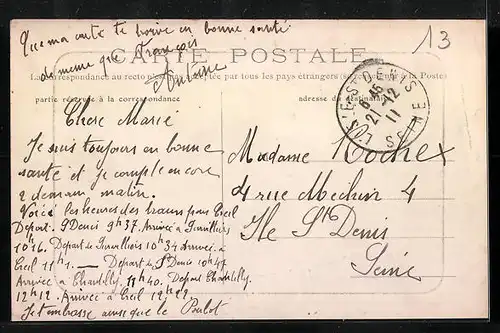 Que ma carte te trouve en bonne santé
de meme que François
Antoine
13
CARTE POSTALE
La correspondance au recto n'est pas acceptée par tous les pays étrangers (se renseigner à la Poste)
partie réservée à la correspondance
adresse du destinataire
ST DENIS
6 45
21-12
11
SEINE
Chere Marie
Je suis toujours en bonne
santé et je compte encore
2 demain matin.
Voici les heures des trains pour Creil
Depart. St Denis 9h37. Arrivée à
10h16. Depart de 10h34 Arrivée à
Creil 11h1. — Depart de St Denis 10h47
Arrivée à Chantilly. 11h40. Depart Chantilly.
12h12. Arrivée à Creil 12h22.
Je t'embrasse ainsi que le
Madame Rochex
4 rue Mechin 4
Ile St Denis
Seine